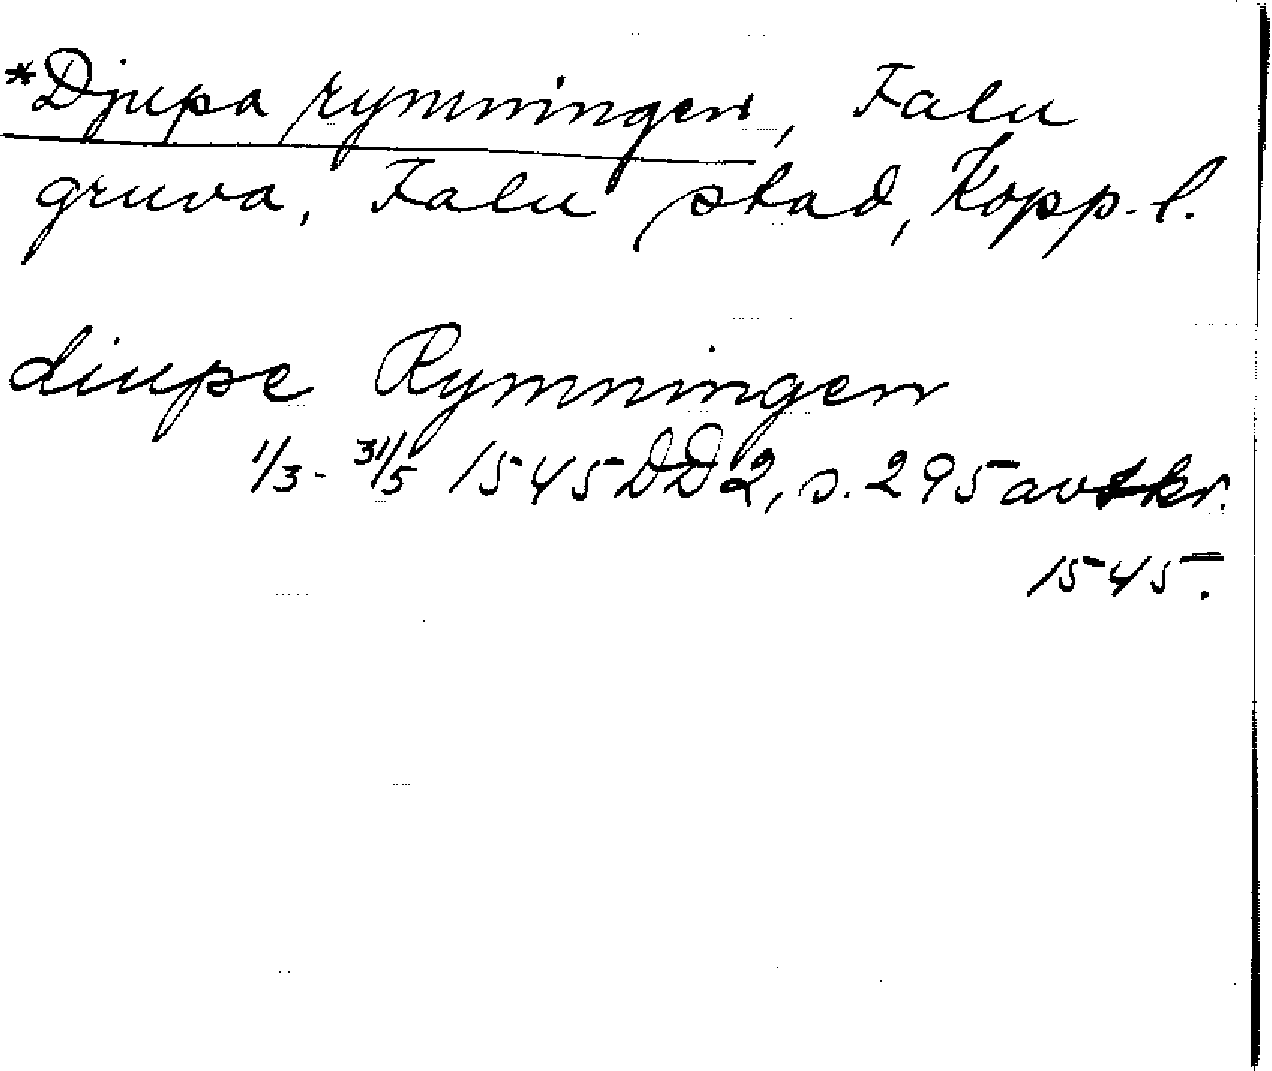 *Djupa rymningen, Falu
gruva, Falu stad, Kopp. l.
diupe Rymningen
1/3 - 31/5 1545 DD 2, s. 295 avskr.
1545.